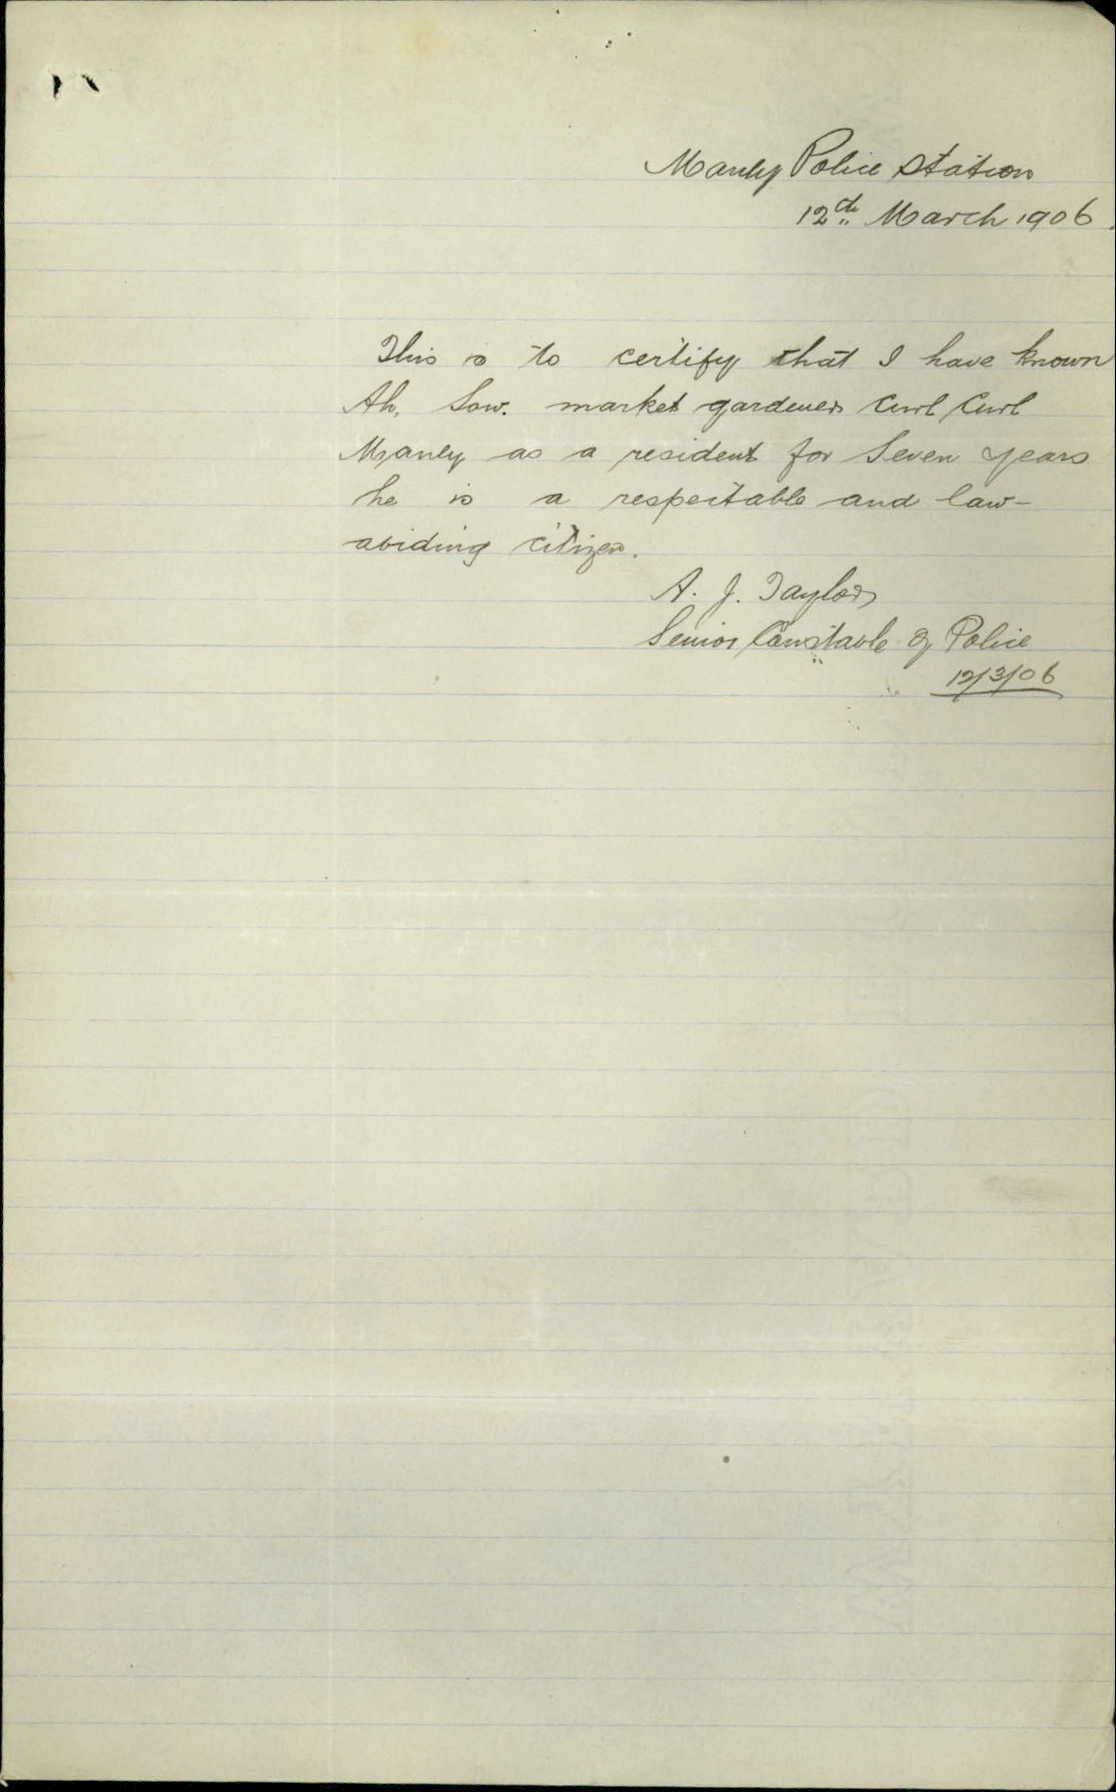 Manly Police Station
12th March 1906.
This is to certify that I have known
Ah. Sow. market gardener Curl Curl
Manly as a resident for Seven years
he is a respectable and law-
abiding citizen.
A. J. Taylor
Senior Constable of Police
12/3/06